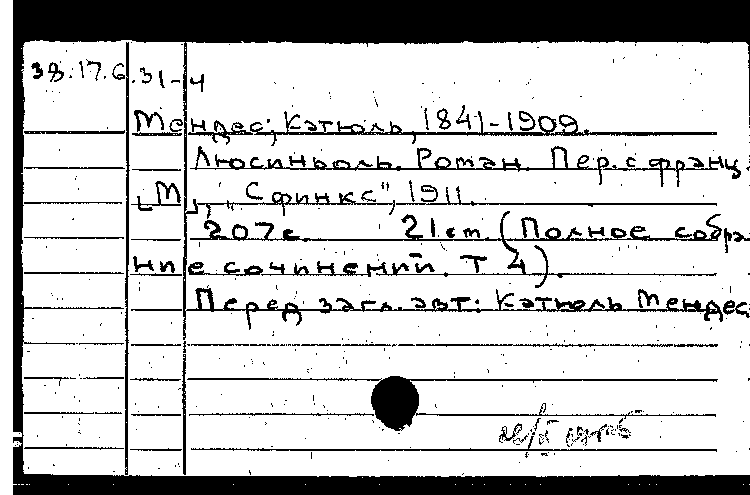 38.17.6.31-4
Мендес, Катюль, 1841-1909.
Люсиньоль. Роман. Пер. с франц.
[М], "Сфинкс", 1911.
207 с. 21 см. (Полное собра
ние сочинений. Т 4).
Перед загл. авт.: Катюль Мендес